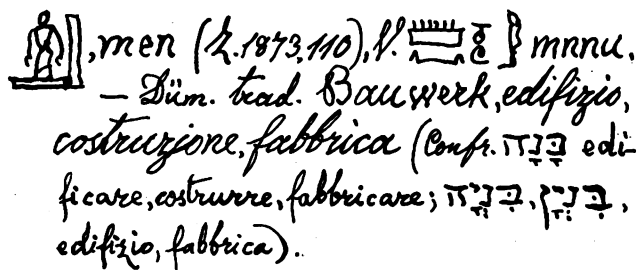 , men (Z. 1873, 110), V. mnnu.
— Düm. trad. Bauwerk, edifizio,
costruzione, fabbrica (Confr. בָּנָה edi-
ficare, costrurre, fabbricare; בִּנְיָה, בִּנְיָן,
edifizio, fabbrica).